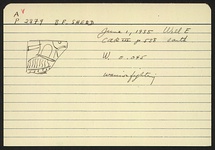 A
P 2379 B.F. SHERD
June 1, 1935 Well E
Card # p 538 South
W. 0.095
warrior fighting